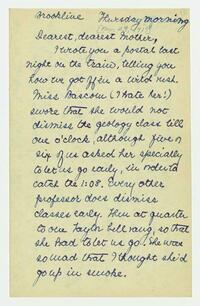 Brookline Thursday morning
Dearest, dearest Mother,
I wrote you a postal last
night on the train, telling you
how we got off in a wild rush.
Miss Bascom (I hate her!)
swore that she would not
dismiss the geology class till
one o'clock, although five or
six of us asked her specially
to let us go early, in order to
catch the 1:08. Every other
professor does dismiss
classes early. Then at quarter
to one Taylor bell rang, so that
she had to let us go. She was
so mad that I thought she'd
go up in smoke.